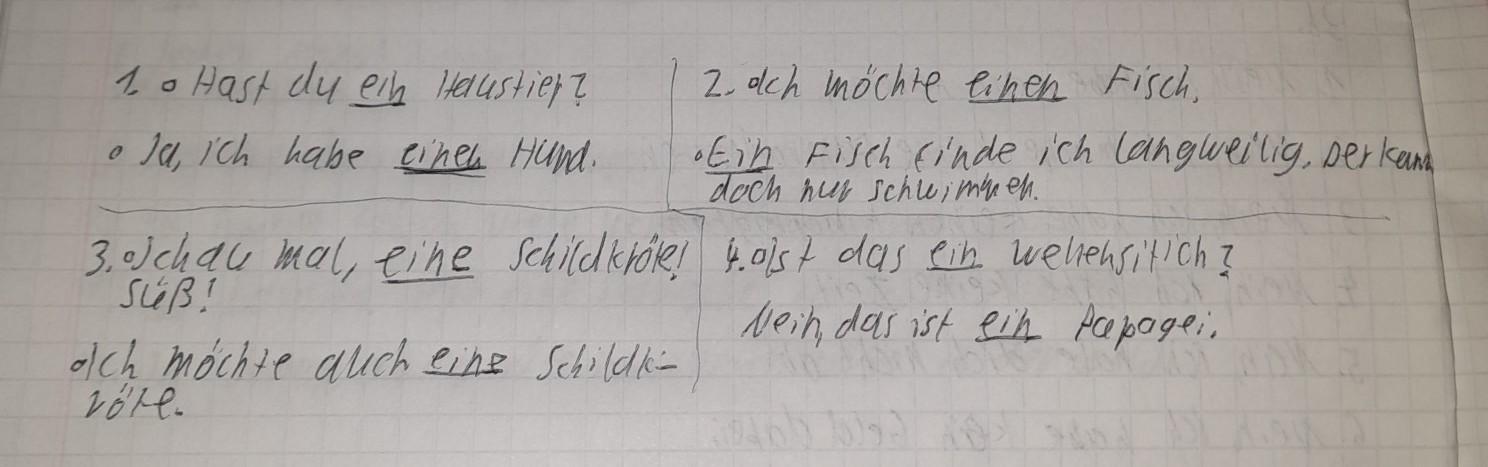 1. o Hast du ein Haustier?
o Ja, ich habe einen Hund.
2. o Ich möchte einen Fisch.
• Ein Fisch finde ich langweilig. Der kann
doch nur schwimmen.
3. o Schau mal, eine Schildkröte!
Süß!
o Ich möchte auch eine Schildk-
röte.
4. o Ist das ein Wellensitich?
Nein, das ist ein Papagei.